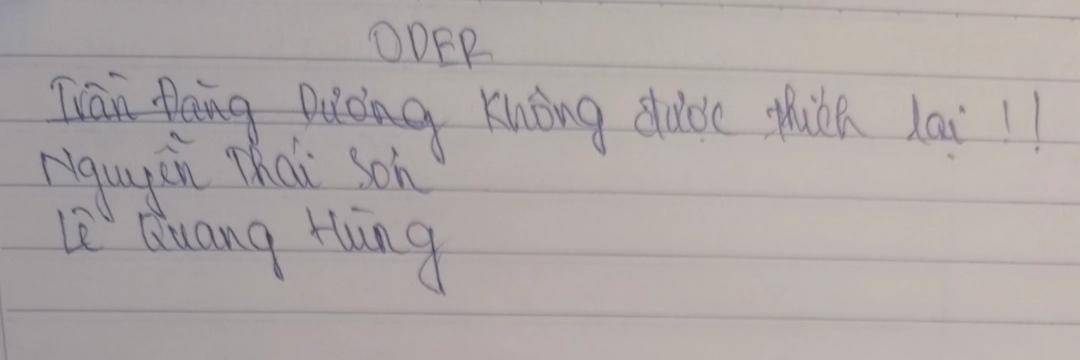 ODER
Trần Đăng Dương không được thích lại !!
Nguyễn Thái Sơn
Lê Quang Hùng